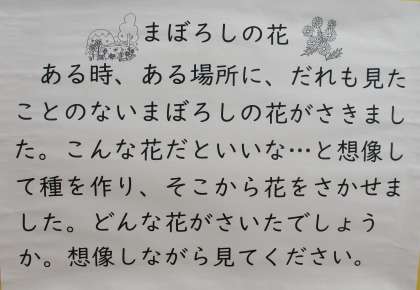 まぼろしの花
ある時、ある場所に、だれも見た
ことのないまぼろしの花がさきまし
た。こんな花だといいな…と想像し
て種を作り、そこから花をさかせま
した。どんな花がさいたでしょう
か。想像しながら見てください。